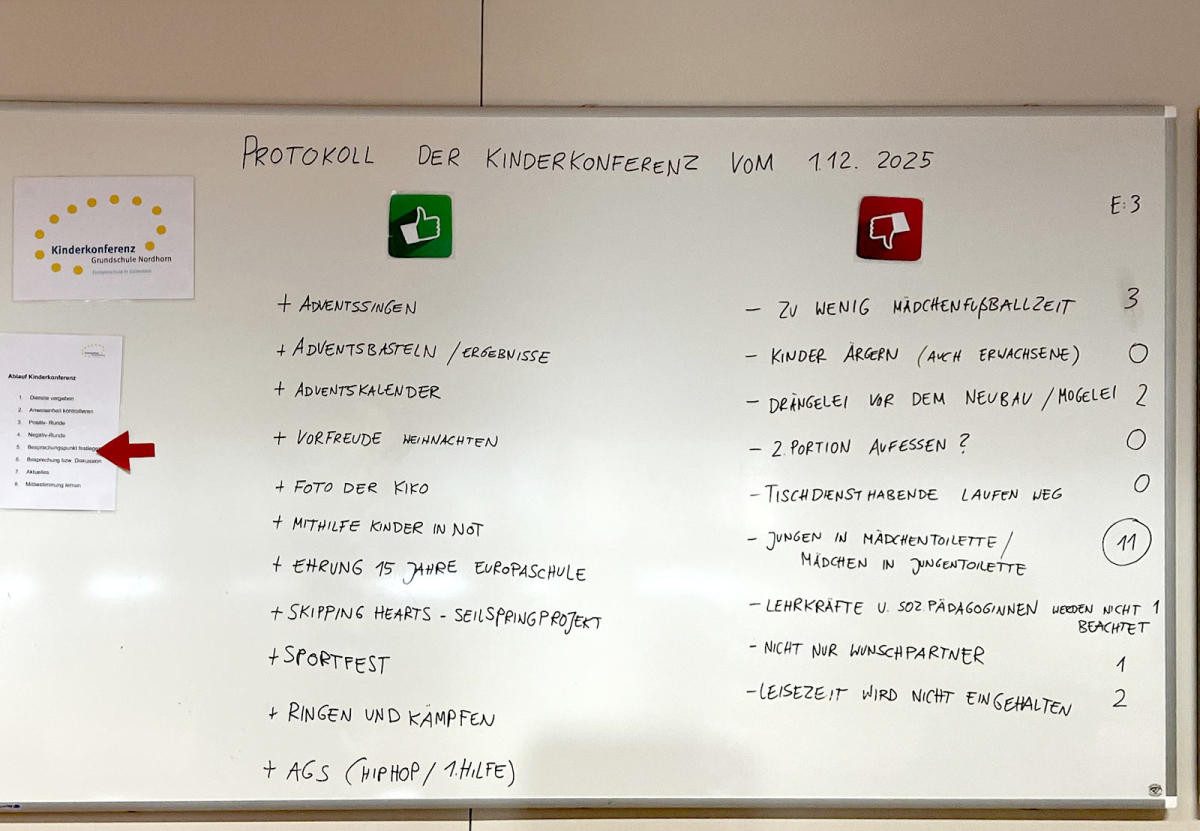 PROTOKOLL DER KINDERKONFERENZ VOM 1.12. 2025
Kinderkonferenz
Grundschule Nordhorn
Ablauf Kinderkonferenz
1. Dienste vergeben
2. Anwesenheit kontrollieren
3. Positiv- Runde
4. Negativ-Runde
5. Besprechungspunkt
6. Besprechung bzw. Diskussion
7. Aktuelles
8. Mitbestimmung lernen
+ ADVENTSSINGEN
+ ADVENTSBASTELN / ERGEBNISSE
+ ADVENTSKALENDER
+ VORFREUDE WEIHNACHTEN
+ FOTO DER KIKO
+ MITHILFE KINDER IN NOT
+ EHRUNG 15 JAHRE EUROPASCHULE
+ SKIPPING HEARTS - SEILSPRINGPROJEKT
+ SPORTFEST
+ RINGEN UND KÄMPFEN
+ AGS (HIPHOP / 1.HILFE)
E:3
- ZU WENIG MÄDCHENFUßBALLZEIT 3
- KINDER ÄRGERN (AUCH ERWACHSENE) 0
- DRÄNGELEI VOR DEM NEUBAU / MOGELEI 2
- 2.PORTION AUFESSEN ? 0
- TISCHDIENSTHABENDE LAUFEN WEG 0
- JUNGEN IN MÄDCHENTOILETTE / 11
MÄDCHEN IN JUNGENTOILETTE
- LEHRKRÄFTE U. SOZ.PÄDAGOGINNEN WERDEN NICHT 1
BEACHTET
- NICHT NUR WUNSCHPARTNER 1
- LEISEZEIT WIRD NICHT EINGEHALTEN 2